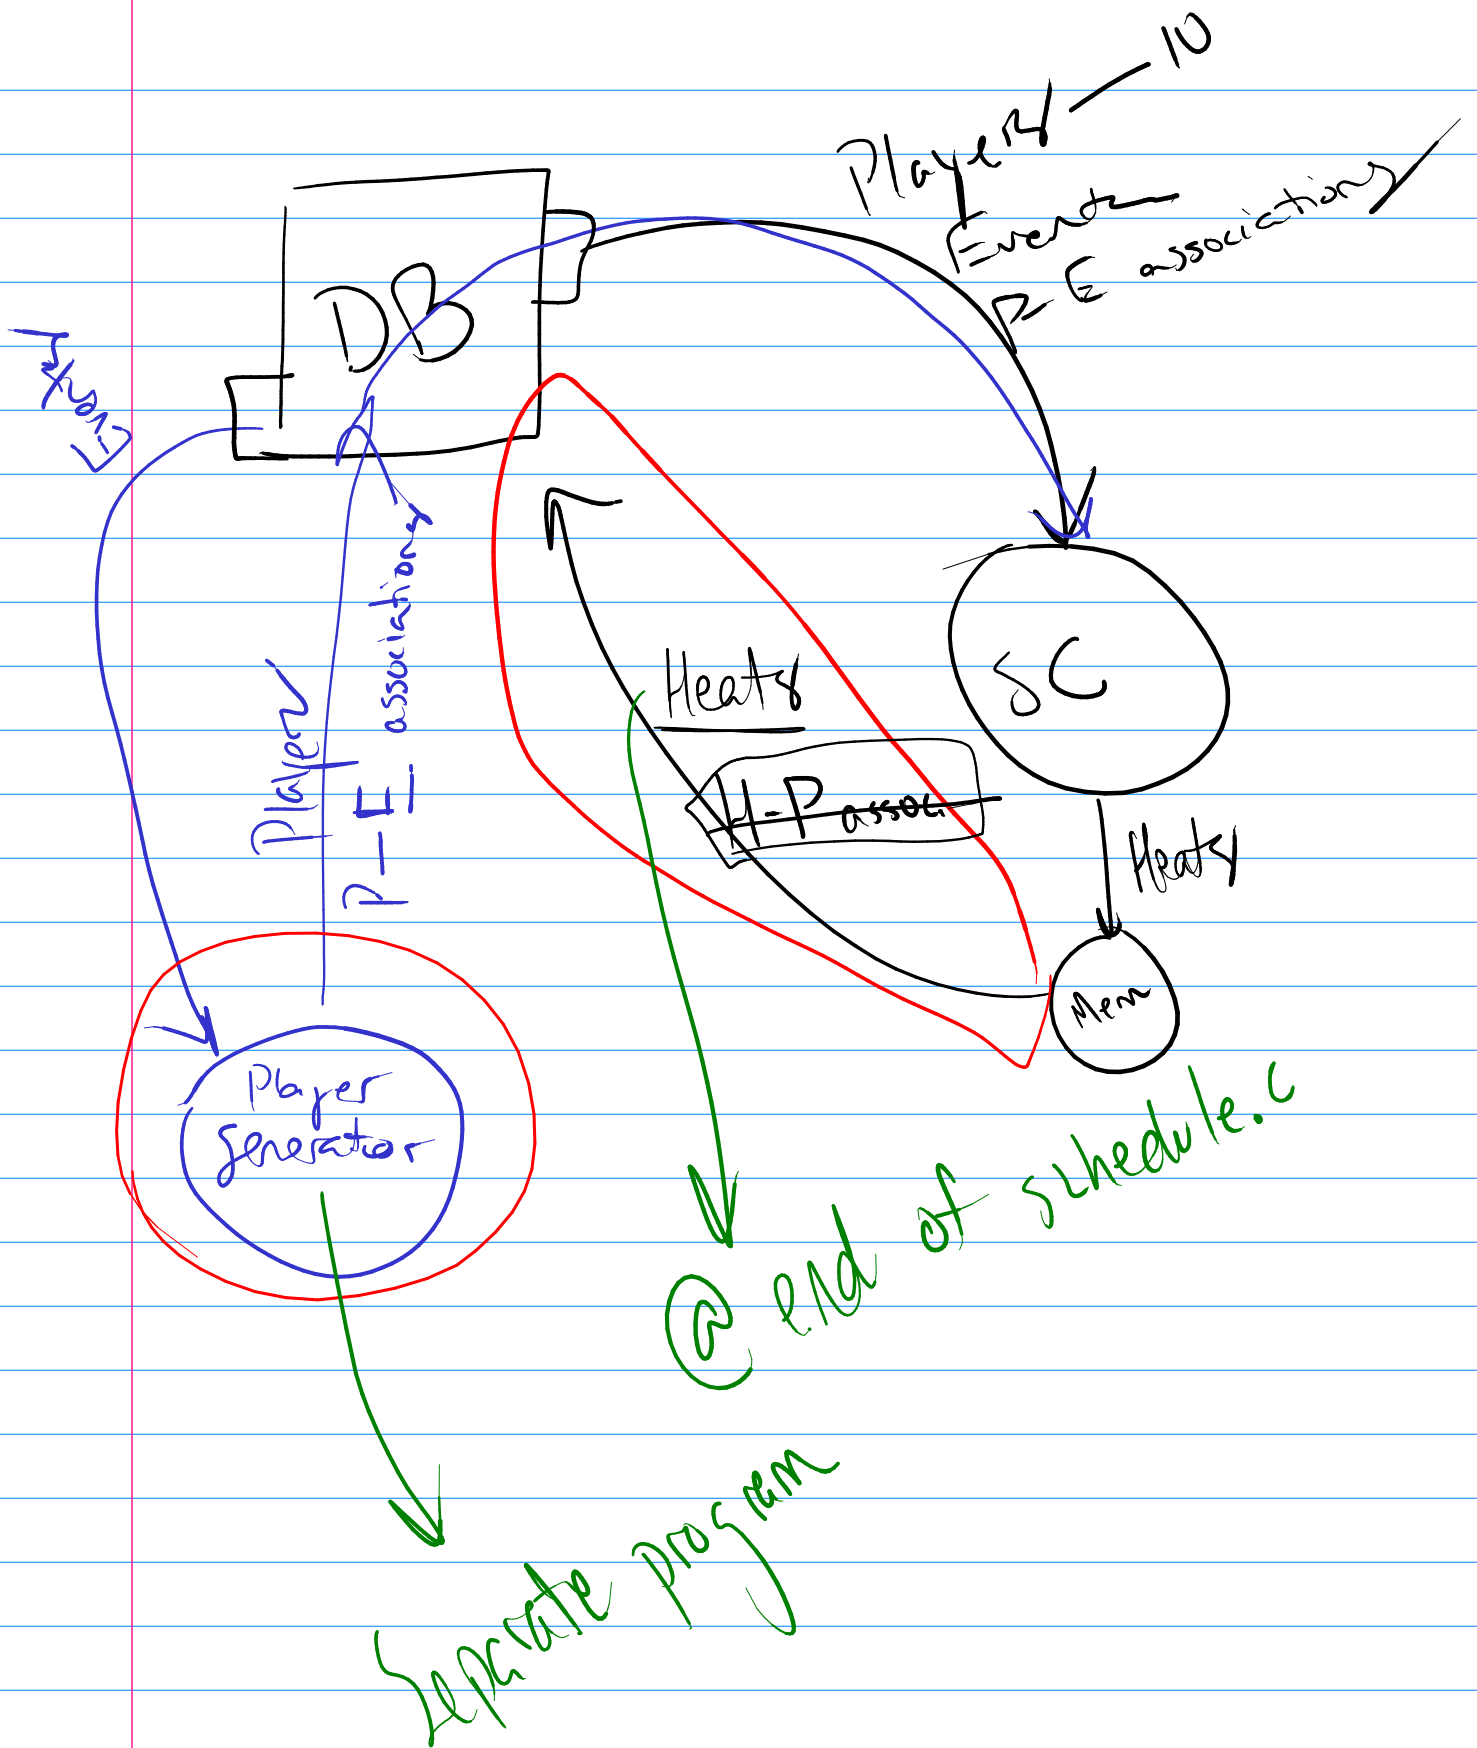 Players — 10
Events
P-E associations
DB
Events
Players
P-E associations
SC
Heats
H-P assoc.
Heats
Mem
Player
Generator
@ end of schedule.c
Separate program